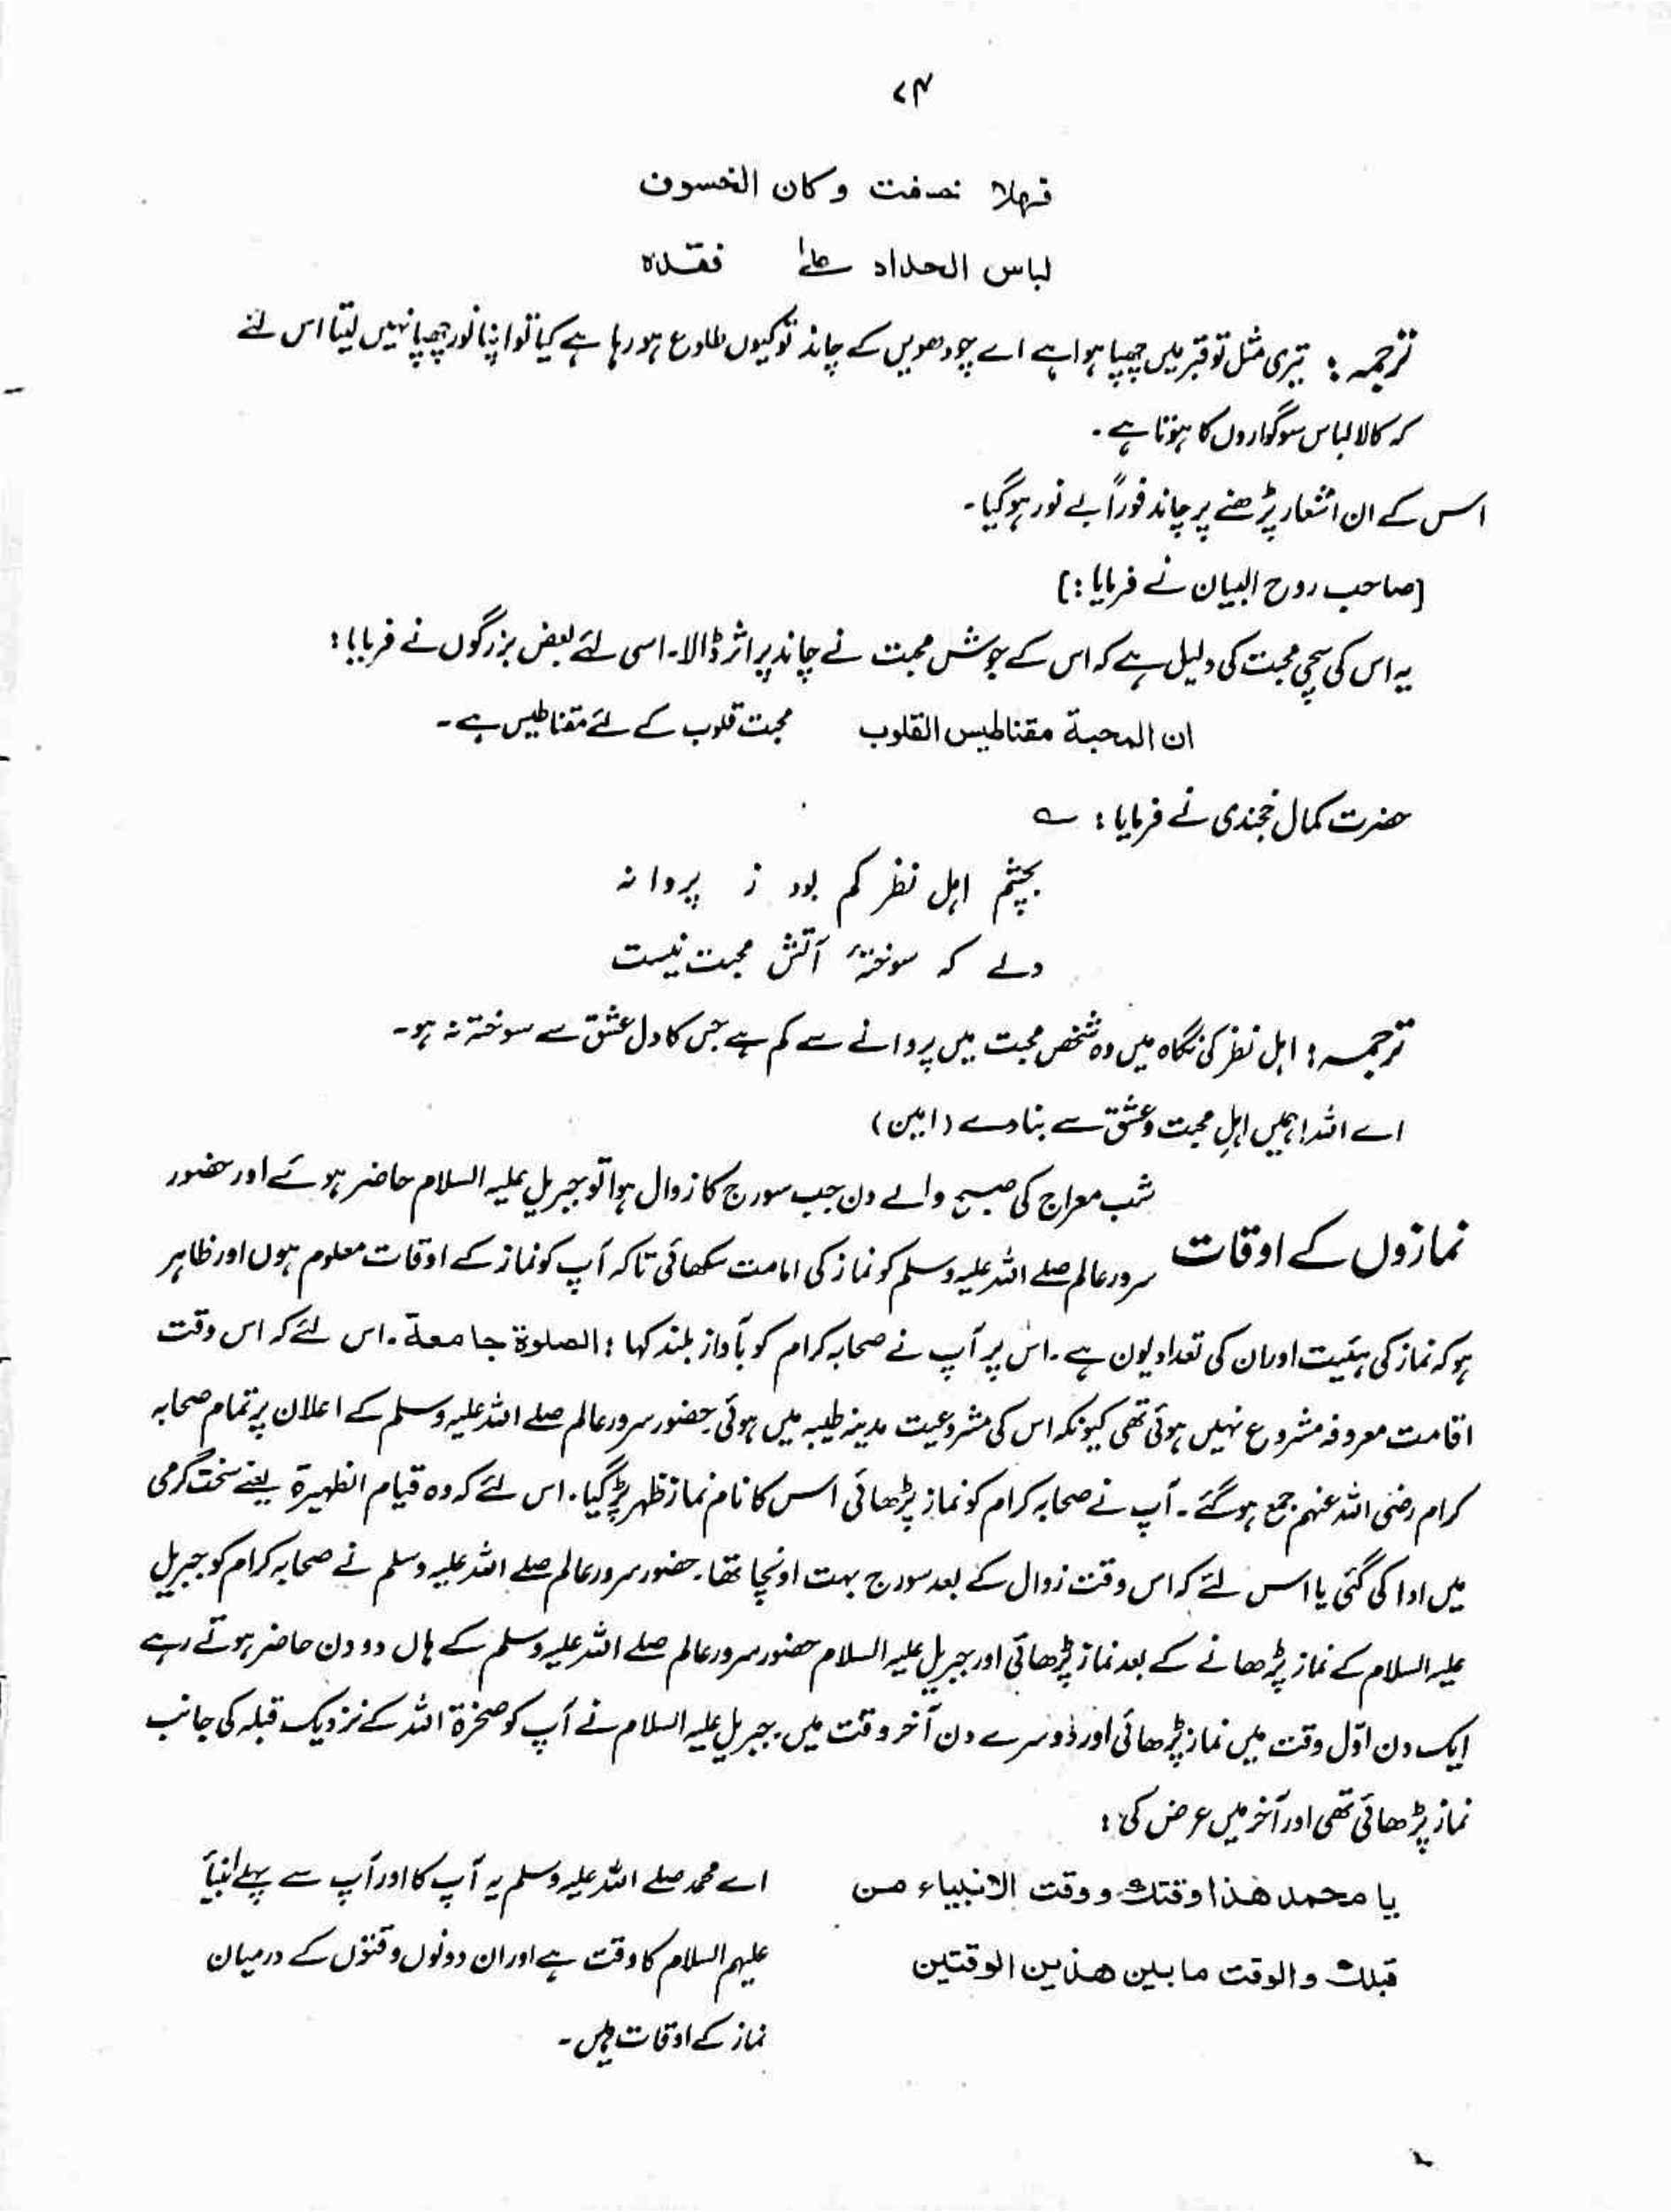 ۷۴
فهلا نصفت وكان الخسوف
لباس الحداد علیٰ فقده
ترجمہ : تیری مثل تو قبر میں چھپا ہوا ہے اے چودھویں کے چاند تو کیوں طلوع ہو رہا ہے کیا تو اپنا نور چھپا نہیں لیتا اس لئے
کہ کالا لباس سوگواروں کا ہوتا ہے۔
اس کے ان اشعار پڑھنے پر چاند فوراً بے نور ہوگیا۔
[صاحب روح البیان نے فرمایا :]
یہ اس کی سچی محبت کی دلیل ہے کہ اس کے جوش محبت نے چاند پر اثر ڈالا۔ اسی لئے بعض بزرگوں نے فرمایا :
ان المحبة مقناطيس القلوب محبت قلوب کے لئے مقناطیس ہے۔
حضرت کمال خجندی نے فرمایا : ؎
بچشم اہل نظر کم بود ز پروانہ
دلے کہ سوختۂ آتش محبت نیست
ترجمہ : اہل نظر کی نگاہ میں وہ شخص محبت میں پروانے سے کم ہے جس کا دل عشق سے سوختہ نہ ہو۔
اے اللہ! ہمیں اہلِ محبت و عشق سے بنا دے (امین)
شب معراج کی صبح والے دن جب سورج کا زوال ہوا تو جبریل علیہ السلام حاضر ہوئے اور حضور
نمازوں کے اوقات سرور عالم صلے اللہ علیہ وسلم کو نماز کی امامت سکھائی تاکہ آپ کو نماز کے اوقات معلوم ہوں اور ظاہر
ہو کہ نماز کی ہیئیت اور ان کی تعداد یوں ہے۔ اس پر آپ نے صحابہ کرام کو بآواز بلند کہا : الصلوة جامعة۔ اس لئے کہ اس وقت
اقامت معروفہ مشروع نہیں ہوئی تھی کیونکہ اس کی مشروعیت مدینہ طیبہ میں ہوئی۔ حضور سرور عالم صلے اللہ علیہ وسلم کے اعلان پر تمام صحابہ
کرام رضی اللہ عنہم جمع ہوگئے۔ آپ نے صحابہ کرام کو نماز پڑھائی اس کا نام نماز ظہر پڑ گیا۔ اس لئے کہ وہ قیام الظهيرة یعنے سخت گرمی
میں ادا کی گئی یا اس لئے کہ اس وقت زوال کے بعد سورج بہت اونچا تھا۔ حضور سرور عالم صلے اللہ علیہ وسلم نے صحابہ کرام کو جبریل
علیہ السلام کے نماز پڑھانے کے بعد نماز پڑھائی اور جبریل علیہ السلام حضور سرور عالم صلے اللہ علیہ وسلم کے ہاں دو دن حاضر ہوتے رہے
ایک دن اوّل وقت میں نماز پڑھائی اور دوسرے دن آخر وقت میں۔ جبریل علیہ السلام نے آپ کو صخرة اللہ کے نزدیک قبلہ کی جانب
نماز پڑھائی تھی اور آخر میں عرض کی :
يا محمد هذا وقتك ووقت الانبياء من اے محمد صلے اللہ علیہ وسلم یہ آپ کا اور آپ سے پہلے انبیأ
قبلك والوقت ما بين هذين الوقتين علیہم السلام کا وقت ہے اور ان دونوں وقتوں کے درمیان
نماز کے اوقات ہیں۔